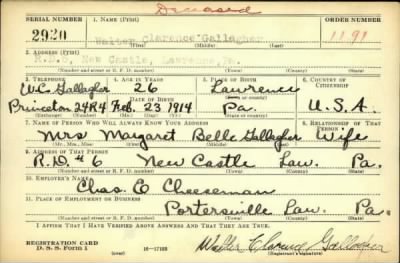 Deceased
SERIAL NUMBER 1. NAME (Print) ORDER NUMBER
2920 Walter Clarence Gallagher 1191
(First) (Middle) (Last)
2. ADDRESS (Print)
R.D.6, New Castle, Lawrence, Pa.
(Number and street or R. F. D. number) (Town) (County) (State)
3. TELEPHONE 4. AGE IN YEARS 5. PLACE OF BIRTH 6. COUNTRY OF CITIZENSHIP
W.C. Gallagher 26 Lawrence
DATE OF BIRTH (Town or county)
Princeton 24R4 Feb. 23 1914 Pa. U.S.A.
(Exchange) (Number) (Mo.) (Day) (Yr.) (State or country)
7. NAME OF PERSON WHO WILL ALWAYS KNOW YOUR ADDRESS 8. RELATIONSHIP OF THAT PERSON
Mrs Margaret Belle Gallagher Wife
(Mr., Mrs., Miss) (First) (Middle) (Last)
9. ADDRESS OF THAT PERSON
R.D. #6 New Castle Law. Pa.
(Number and street or R. F. D. number) (Town) (County) (State)
10. EMPLOYER'S NAME
Chas. E Cheeseman
11. PLACE OF EMPLOYMENT OR BUSINESS
Portersville Law. Pa.
(Number and street or R. F. D. number) (Town) (County) (State)
I AFFIRM THAT I HAVE VERIFIED ABOVE ANSWERS AND THAT THEY ARE TRUE.
REGISTRATION CARD
D. S. S. Form 1 16-17105 Walter Clarence Gallagher
(Registrant's signature)